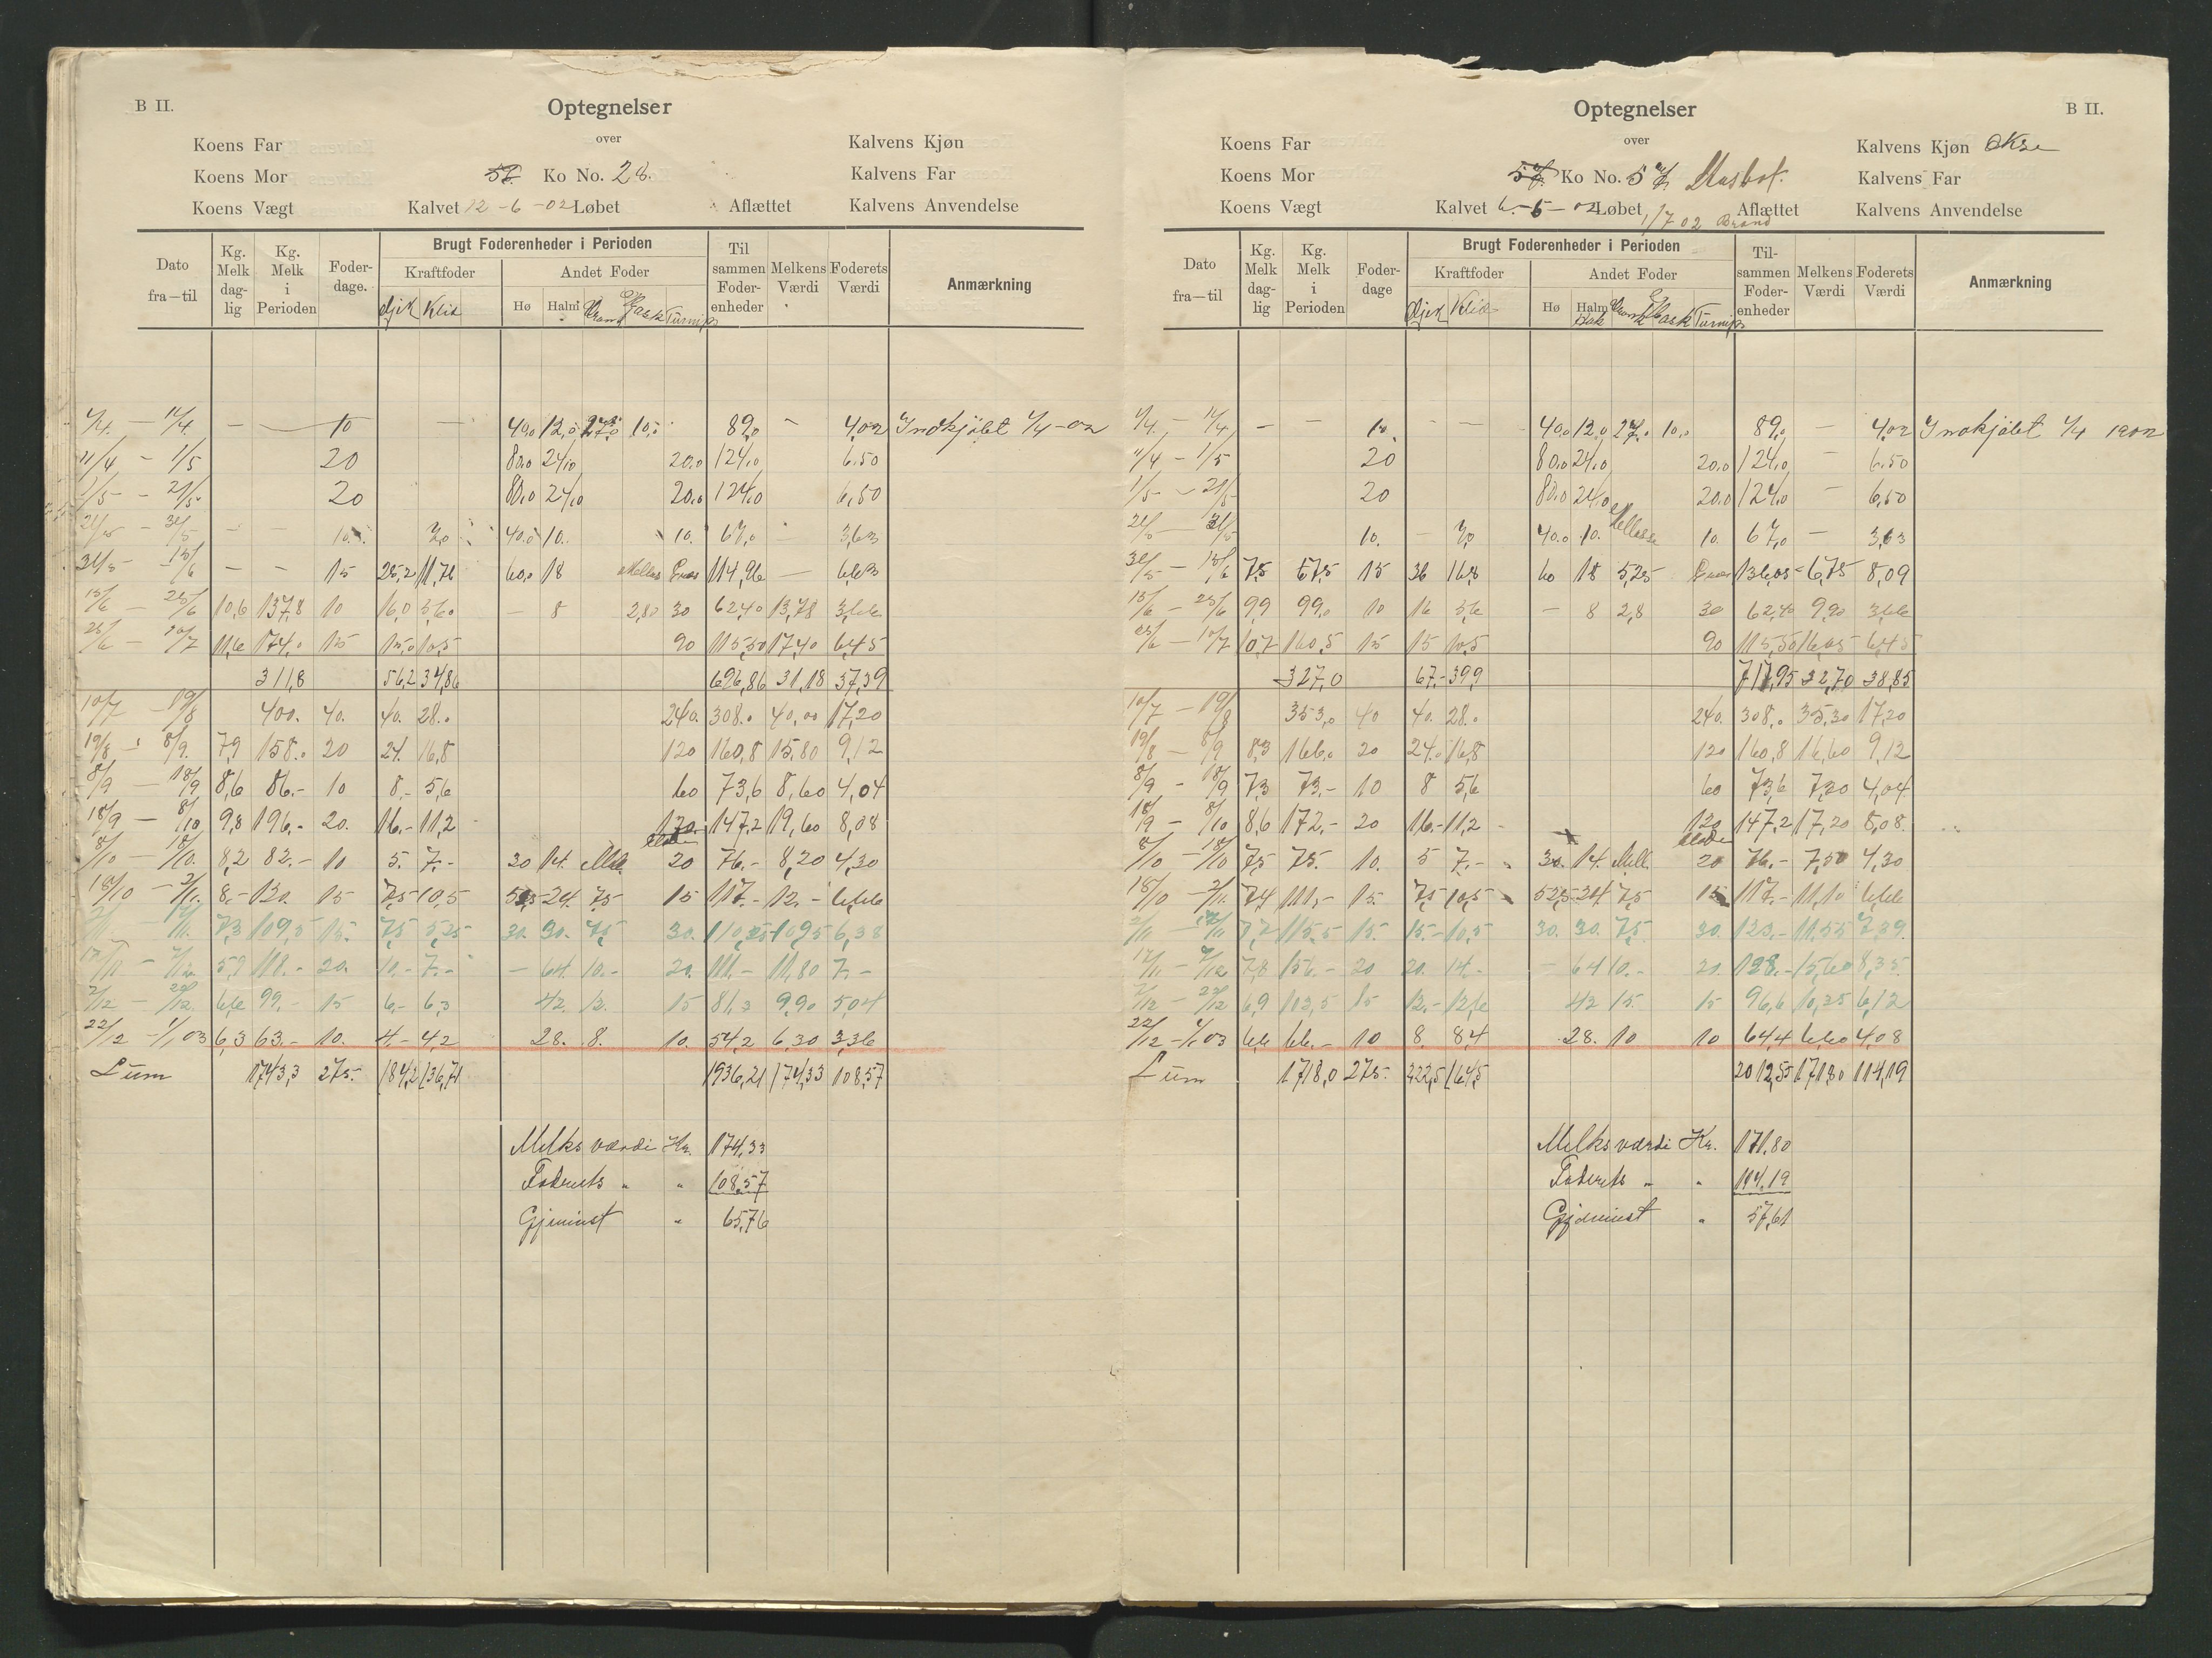 B II.
Optegnelser
over
Koens Far
Kalvens Kjøn
Koens Mor
Ko No. 28.
Kalvens Far
Koens Vægt
Kalvet 12-6-02 Løbet
Aflættet
Kalvens Anvendelse
Dato fra—til
Kg. Melk dag-lig
Kg. Melk i Perioden
Foder-dage.
Brugt Foderenheder i Perioden
Kraftfoder
Andet Foder
Klid
Hø
Halm
Mask
Turnips
Til sammen Foder-enheder
Melkens Værdi
Foderets Værdi
Anmærkning
1/4 — 11/4 — — 10 — 40,0 12,0 27,0 10,0 89,0 — 4,02 Indkjöbt 1/4-02
11/4 — 1/5 20 80,0 24,0 20,0 124,0 6.50
1/5 — 21/5 20 80,0 24,0 20,0 124,0 6,50
21/5 — 31/5 — — 10. 7,0 40.0 10. 10. 67,0 — 3,63
31/5 — 15/6 — — 15 25,2 11,76 60,0 18 Mellas Græs 114,96 — 6,63
15/6 — 25/6 10,6 137,8 10 16,0 5,60 — 8 2,80 30 62,40 13,78 3,66
25/6 — 10/7 11,6 174,0 15 15,0 10,5 90 115,50 17,40 6,45
311,8 56,2 34,86 696,86 31,18 37,39
10/7 — 19/8 400. 40. 40. 28.0 240. 308.0 40,00 17,20
19/8 — 8/9. 7,9 158.0 20 24. 16,8 120 160,8 15,80 9,12
8/9 — 18/9 8,6 86.- 10 8,- 5,6 60 73,6 8,60 4,04
18/9 — 8/10 9,8 196,- 20. 16.- 11,2 120 147,2 19,60 8,08
8/10 — 18/10. 8,2 82.- 10 5. 7.- 30 14. Mell. 20 76,- 8,20 4,30
18/10 — 2/11. 8,- 120. 15 7,5 10,5 52,5 24. 7,5 15 117.- 12,- 6,66
2/11 17/11. 7,3 109,5 15. 7,5 5,25 30. 30. 7,5 30. 110,25 10,95 6,38
17/11 — 7/12 5,9 118.- 20. 10.- 7.- — 64 10.- 20. 111.- 11,80 7.-
7/12 — 22/12. 6,6 99,- 15 6,- 6,3 42. 12. 15 81,3 9,90 5,04
22/12 — 1/1 03 6,3 63.- 10. 4.- 4,2 28. 8. 10. 54,2 6,30 3,36
Sum 1743,3 275. 184,2 136,71 1936,21 174,33 108,57
Melks værdi Kr. 174,33
Foderets " " 108,57
Gjevinst " 65,76
Optegnelser
B II.
over
Koens Far
Kalvens Kjøn Okse
Koens Mor
Ko No. 57
Kalvens Far
Koens Vægt
Kalvet 6-5-02 Løbet 1/7 02 Brand
Aflættet
Kalvens Anvendelse
Dato fra—til
Kg. Melk dag-lig
Kg. Melk i Perioden
Foder-dage
Brugt Foderenheder i Perioden
Kraftfoder
Andet Foder
Klid
Hø
Halm
Hak
Mask
Turnips
Til-sammen Foder-enheder
Melkens Værdi
Foderets Værdi
Anmærkning
1/4. — 11/4 — — 10. — — 40,0 12,0 27,0 10,0 89,0 — 4,02 Indkjöbt 1/4 1902
11/4 — 1/5 20 80,0 24,0 20,0 124,0 — 6.50
1/5 — 21/5 20 80,0 24,0 20,0 124,0 — 6,50
21/5 — 31/5 10. — 7,0 40.0 10. Mellasse 10. 67,0 — 3,63
31/5 — 15/6 7,5 67,5 15 36 16,8 60 18 5,25 Græs 136,05 6,75 8,09
15/6 — 25/6 9,9 99,0 10 16 5,6 — 8 2,8 30 62,40 9,90 3,66
25/6 — 10/7 10,7 160,5 15 15 10,5 90 115,50 16,05 6,45
327,0 67.- 39,9 717,95 32,70 38,85
10/7 — 19/8 353,0 40 40. 28.0 240. 308.0 35,30 17,20
19/8 — 8/9 8,3 166.0 20 24.0 16,8 120 160,8 16,60 9,12
8/9 — 18/9 7,3 73.- 10 8 5,6 60 73,6 7,30 4,04
18/9 — 8/10 8,6 172,- 20 16.- 11,2 120 147,2 17,20 8,08
8/10 — 18/10 7,5 75. 10. 5 7.- 30. 14. Mell. 20 76.- 7,50 4,30
18/10 — 2/11. 7,4 111,- 15. 7,5 10,5 52,5 24 7,5 15 117.- 11,10 6,66
2/11 — 17/11 7,7 115,5 15. 15.- 10,5 30. 30. 7,5 30. 123,- 11,55 7,39
17/11 — 7/12 7,8 156.- 20 20. 14.- — 64 10.- 20. 128.- 15,60 8,35
7/12 — 22/12 6,9 103,5 15 12.- 12,6 42 15. 15 96,6 10,35 6,12
22/12 — 1/1 03 6,6 66.- 10 8. 8,4 28. 10 10 64,4 6,60 4,08
Sum 1718,0 275. 222,5 164,5 2012,55 171,80 114,19
Melks værdi Kr. 171,80
Foderets " " 114,19
Gjevinst " 57,61